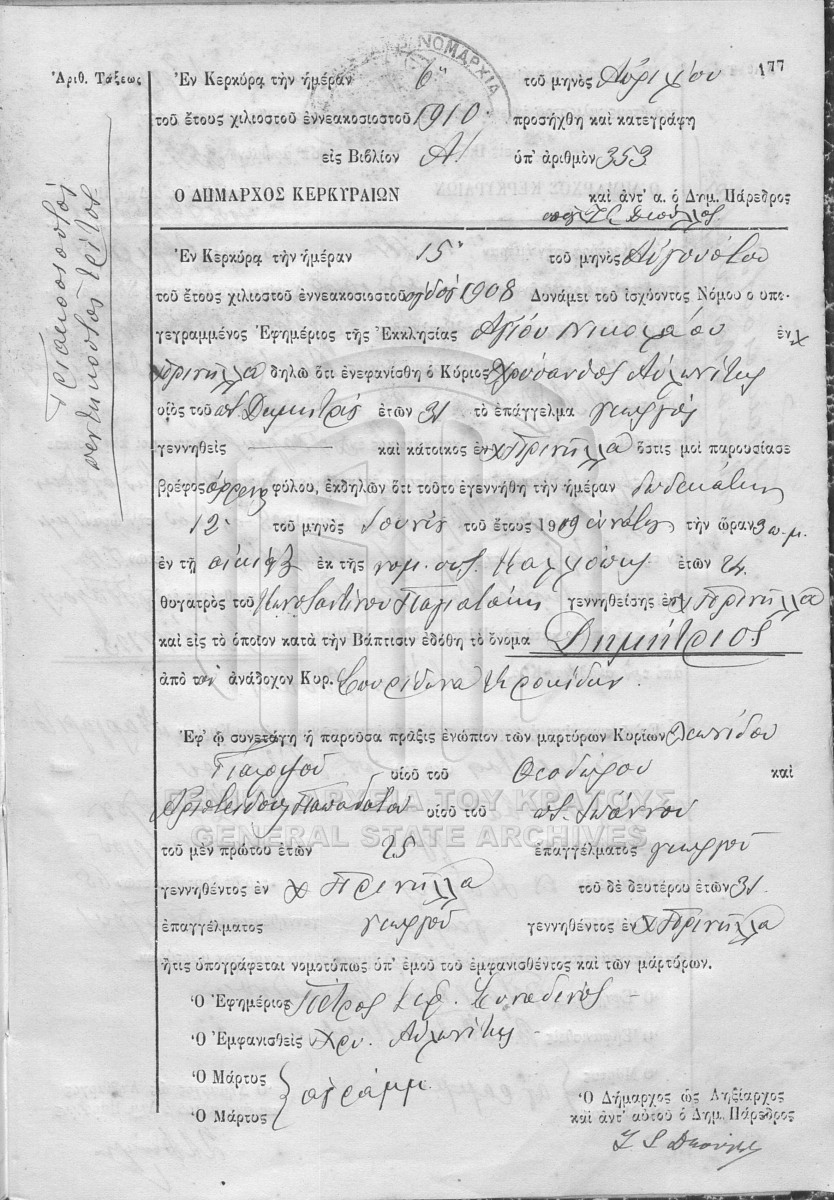 177
Ἀριθ. Τάξεως
ΝΟΜΑΡΧΙΑ
Ἐν Κερκύρᾳ τὴν ἡμέραν 6η τοῦ μηνὸς Ἀπριλίου
τοῦ ἔτους χιλιοστοῦ ἐννεακοσιοστοῦ 1910 προσήχθη καὶ κατεγράφη
εἰς Βιβλίον Α! ὑπ' ἀριθμὸν 353
Ο ΔΗΜΑΡΧΟΣ ΚΕΡΚΥΡΑΙΩΝ καὶ ἀντ' α. ὁ Δημ. Πάρεδρος
Τριακοσιοστός
πεντηκοστός τρίτος
Ἐν Κερκύρᾳ τὴν ἡμέραν 15 τοῦ μηνὸς Αὐγούστου
τοῦ ἔτους χιλιοστοῦ ἐννεακοσιοστοῦ 1908 Δυνάμει τοῦ ἰσχύοντος Νόμου ο υπο-
γεγραμμένος Ἐφημέριος τῆς Ἐκκλησίας Ἁγίου Νικολάου ἐν χ
Πρινήλλα δηλῶ ὅτι ἐνεφανίσθη ὁ Κύριος Χρύσανθος Αὐλωνίτης
υἱὸς τοῦ ποτ. Δημητρίς ἐτῶν 31 τὸ ἐπάγγελμα γεωργός
γεννηθεὶς καὶ κάτοικος ἐν χ Πρινήλλα ὅστις μοὶ παρουσίασε
βρέφος ἄρρεν φύλου, ἐκδηλῶν ὅτι τοῦτο ἐγεννήθη τὴν ἡμέραν δωδεκάτην
12 τοῦ μηνὸς Ἰουνίς τοῦ ἔτους 1909 ἐννάτου τὴν ὥραν 3 π.μ.
ἐν τῇ οἰκίᾳ ἐκ τῆς νομ. συζ. Καλλιόπης ἐτῶν 24
θυγατρὸς τοῦ Κωνσταντίνου Παγιατάκη γεννηθείσης ἐν χ Πρινήλλα
καὶ εἰς τὸ ὁποῖον κατὰ τὴν Βάπτισιν ἐδόθη τὸ ὄνομα Δημήτριος
ἀπὸ τὸν ἀνάδοχον Κυρ. Σπυρίδωνα
Ἐφ' ᾧ συνετάγη ἡ παροῦσα πρᾶξις ἐνώπιον τῶν μαρτύρων Κυρίων Λεωνίδου
υἱοῦ τοῦ Θεοδώρου καὶ
Ἀριστείδου Παπαδάτου υἱοῦ τοῦ ποτ. Ἰωάννου
ΓΕΝΙΚΑ ΑΡΧΕΙΑ ΤΟΥ ΚΡΑΤΟΥΣ
GENERAL STATE ARCHIVES
τοῦ μὲν πρώτου ἐτῶν 25 ἐπαγγέλματος γεωργοῦ
γεννηθέντος ἐν χ Πρινήλλα τοῦ δὲ δευτέρου ἐτῶν 31
ἐπαγγέλματος γεωργοῦ γεννηθέντος ἐν χ Πρινήλλα
ἥτις ὑπογράφεται νομοτύπως ὑπ' ἐμοῦ τοῦ ἐμφανισθέντος καὶ τῶν μαρτύρων.
Ὁ Ἐφημέριος Πέτρος Συναδινός
Ὁ Ἐμφανισθεὶς Χρυ. Αὐλωνίτης
Ὁ Μάρτυς ἀγράμμ.
Ὁ Μάρτυς
Ὁ Δήμαρχος ὡς Ληξίαρχος
καὶ ἀντ' αὐτοῦ ὁ Δημ. Πάρεδρος